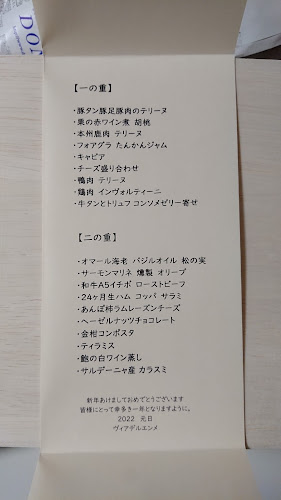 DON
【一の重】
・豚タン豚足豚肉のテリーヌ
・栗の赤ワイン煮 胡桃
・本州鹿肉 テリーヌ
・フォアグラ たんかんジャム
・キャビア
・チーズ盛り合わせ
・鴨肉 テリーヌ
・鶏肉 インヴォルティーニ
・牛タンとトリュフ コンソメゼリー寄せ
【二の重】
・オマール海老 バジルオイル 松の実
・サーモンマリネ 燻製 オリーブ
・和牛A5イチボ ローストビーフ
・24ヶ月生ハム コッパ サラミ
・あんぽ柿ラムレーズンチーズ
・ヘーゼルナッツチョコレート
・金柑コンポスタ
・ティラミス
・鮑の白ワイン蒸し
・サルデーニャ産 カラスミ
新年あけましておめでとうございます
皆様にとって幸多き一年となりますように。
2022 元日
ヴィアデルエンメ